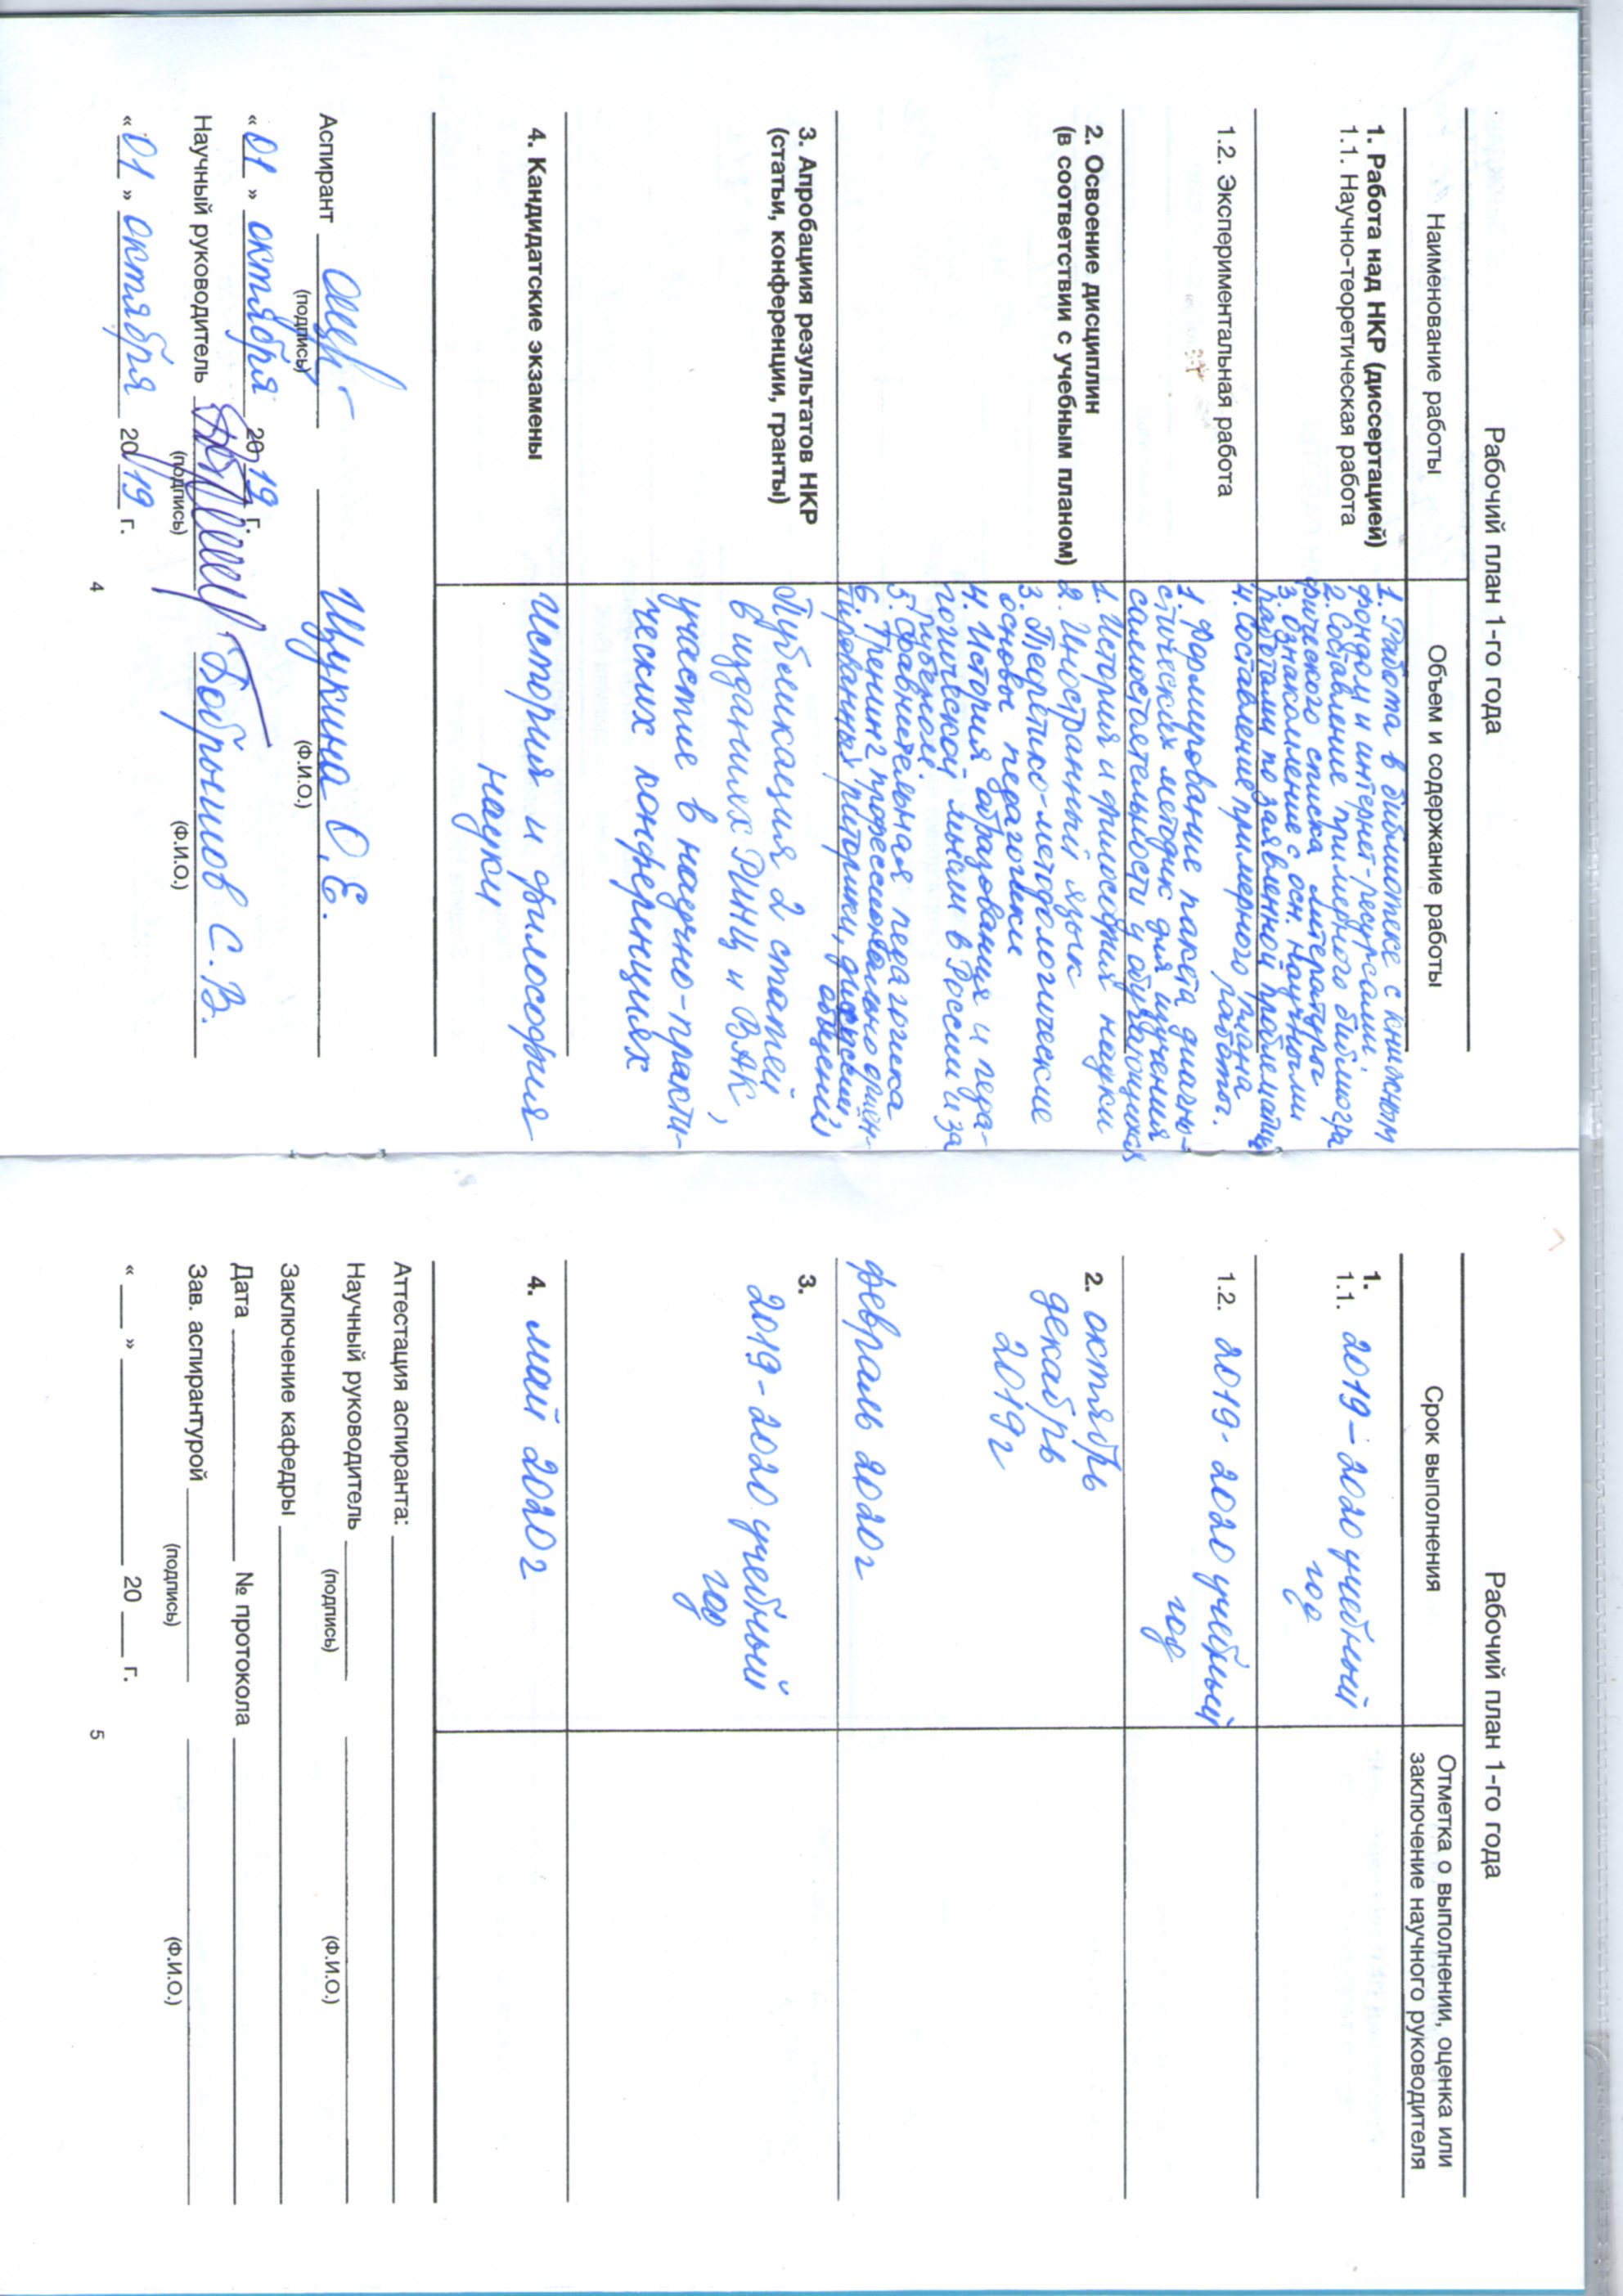 Рабочий план 1-го года
Наименование работы
Объем и содержание работы
1. Работа над НКР (диссертацией)
1.1. Научно-теоретическая работа
1. Работа в библиотеке с книжным
фондом и интернет-ресурсами.
2. Составление примерного библиогра
фического списка литературы
3. Ознакомление с осн. научными
работами по заявленной проблематике
4. Составление примерного плана
работы.
1.2. Экспериментальная работа
1. Формирование пакета диагно-
стических методик для изучения
самостоятельности у обучающихся
2. Освоение дисциплин
(в соответствии с учебным планом)
1. История и философия науки
2. Иностранный язык
3. Теоретико-методологические
основы педагогики
4. История образования и педа-
гогической мысли в России и за
рубежом.
5. Сравнительная педагогика
6. Тренинг профессионально ориен-
тированных риторики, дискуссий
общения
3. Апробациия результатов НКР
(статьи, конференции, гранты)
Публикация 2 статей
в изданиях РИНЦ и ВАК,
участие в научно-практи-
ческих конференциях
4. Кандидатские экзамены
История и философия
науки
Аспирант
Щукина О. Е.
(подпись)
(Ф.И.О.)
« 01 » октября 2019 г.
Научный руководитель
Бобрышов С. В.
(подпись)
(Ф.И.О.)
« 01 » октября 2019 г.
4
Рабочий план 1-го года
Срок выполнения
Отметка о выполнении, оценка или
заключение научного руководителя
1.
1.1. 2019-2020 учебный
год
1.2. 2019-2020 учебный
год
2. октябрь
декабрь
2019г
февраль 2020г
3.
2019-2020 учебный
год
4. май 2020г
Аттестация аспиранта:
Научный руководитель
(подпись)
(Ф.И.О.)
Заключение кафедры
Дата № протокола
Зав. аспирантурой
(подпись)
(Ф.И.О.)
« » 20 г.
5